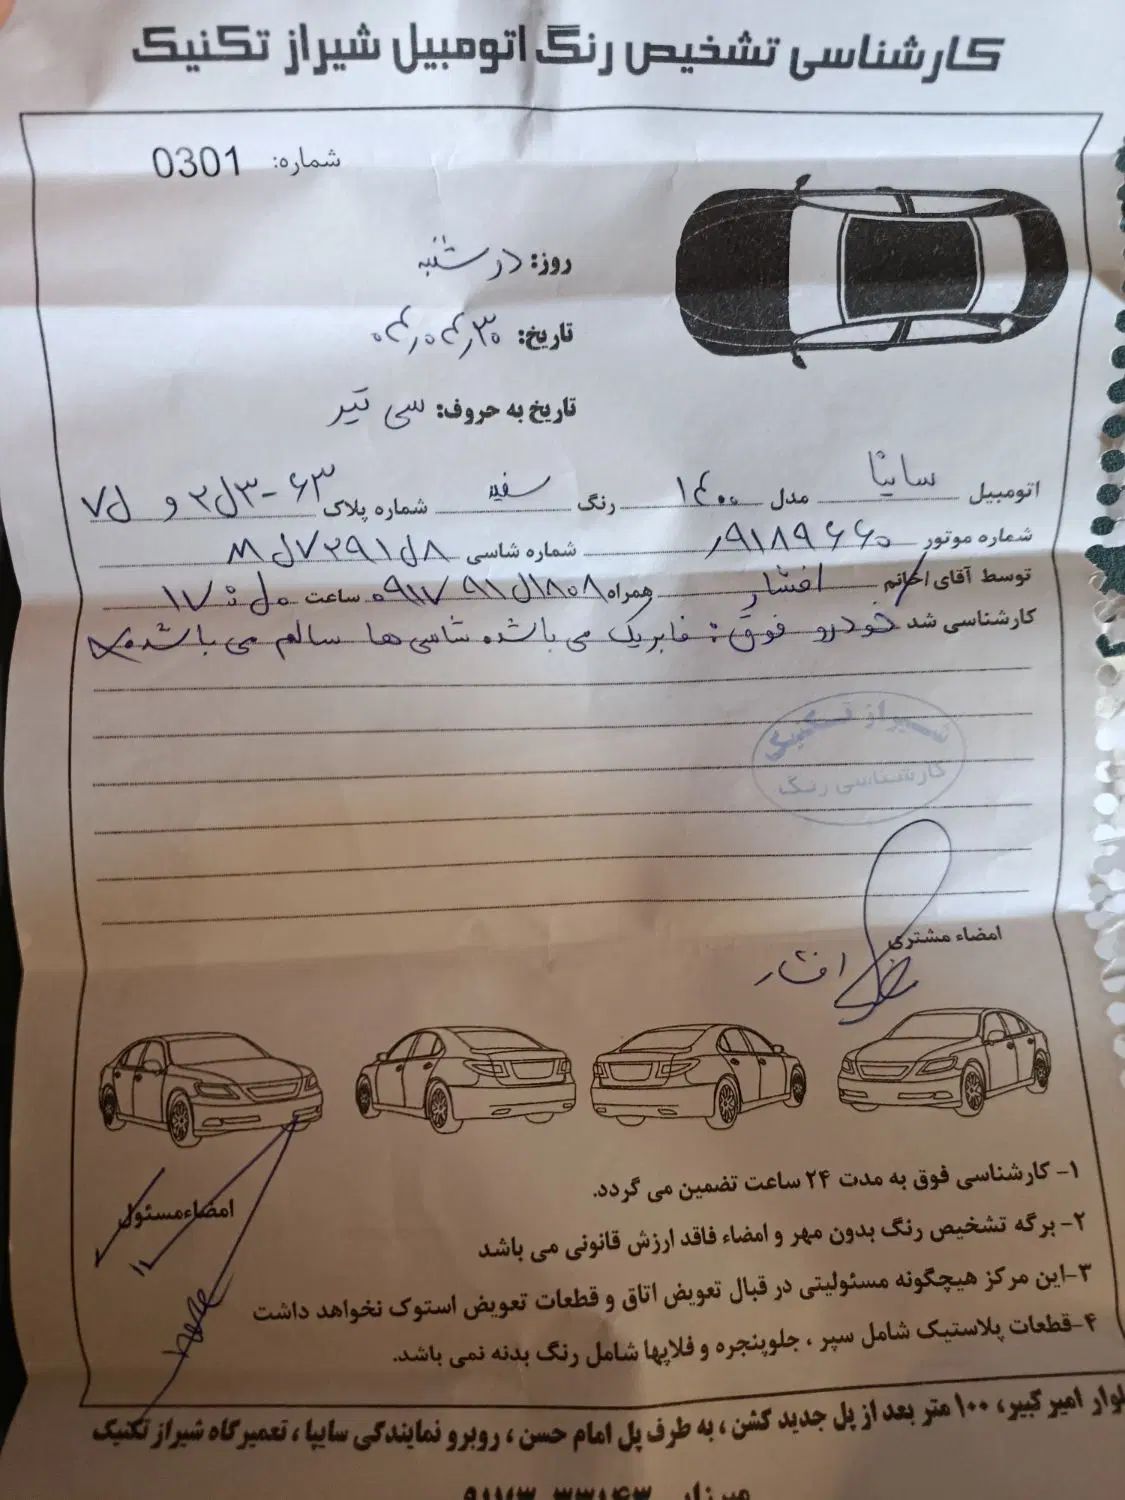 کارشناسی تشخیص رنگ اتومبیل شیراز تکنیک
شماره: 0301
روز: دوشنبه
تاریخ: ۰۴٫۰۴٫۳۰
تاریخ به حروف: سی تیر
اتومبیل ساینا مدل ۱۴۰۰ رنگ سفید شماره پلاک
شماره موتور ۹۱۸۹۶۶۰ شماره شاسی
توسط آقای/خانم افشار همراه ساعت
کارشناسی شد خودرو فوق: فابریک می باشد شاسی ها سالم می باشد
شیراز تکنیک
کارشناسی رنگ
امضاء مشتری
افشار
امضاءمسئول
۱- کارشناسی فوق به مدت ۲۴ ساعت تضمین می گردد.
۲- برگه تشخیص رنگ بدون مهر و امضاء فاقد ارزش قانونی می باشد
۳-این مرکز هیچگونه مسئولیتی در قبال تعویض اتاق و قطعات تعویض استوک نخواهد داشت
۴-قطعات پلاستیک شامل سپر ، جلوپنجره و فلاپها شامل رنگ بدنه نمی باشد.
امیر کبیر، ۱۰۰ متر بعد از پل جدید کشن ، به طرف پل امام حسن ، روبرو نمایندگی سایپا ، تعمیرگاه شیراز تکنیک